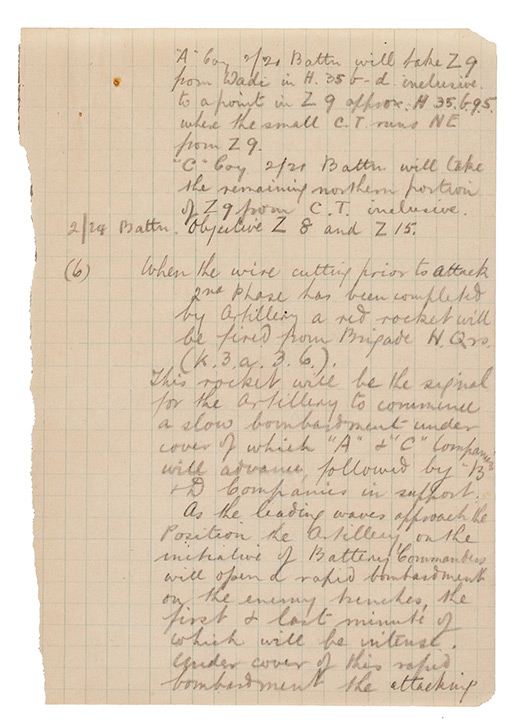 "A" Coy 2/20 Battn will take Z 9
from Wadi in H. 35 b - d inclusive.
to a point in Z 9 approx. H 35. b 9.5.
where the small C.T. runs NE
from Z 9.
"C" Coy 2/20 Battn will take
the remaining northern portion
of Z 9 from C.T. inclusive.
Battn. Objective Z 8 and Z 15.
(6) When the wire cutting prior to attack
2nd Phase has been completed
by Artillery a red rocket will
be fired from Brigade H. Qrs.
(K. 3. a. 3. 6.).
This rocket will be the signal
for the Artillery to commence
a slow bombardment under
cover of which "A" & "C" Companies
will advance, followed by "B"
& D Companies in support.
As the leading waves approach the
Position the Artillery, on the
initiative of Battery Commanders
will open a rapid bombardment
on the enemy trenches, the
first & last minute of
which will be intense.
Under cover of this rapid
bombardment the attacking